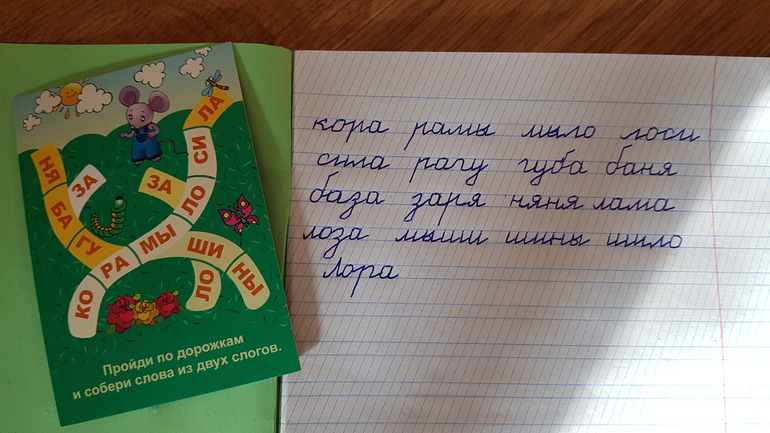 ЛА
СИ
ЛО
МЫ
РА
КО
НЯ
БА
ГУ
ЗА
ЗА
ШИ
НЫ
ЛО
Пройди по дорожкам
и собери слова из двух слогов.
кора рамы мыло лоси
сила рагу губа баня
база заря няня лама
лоза мыши шины шило
Лора